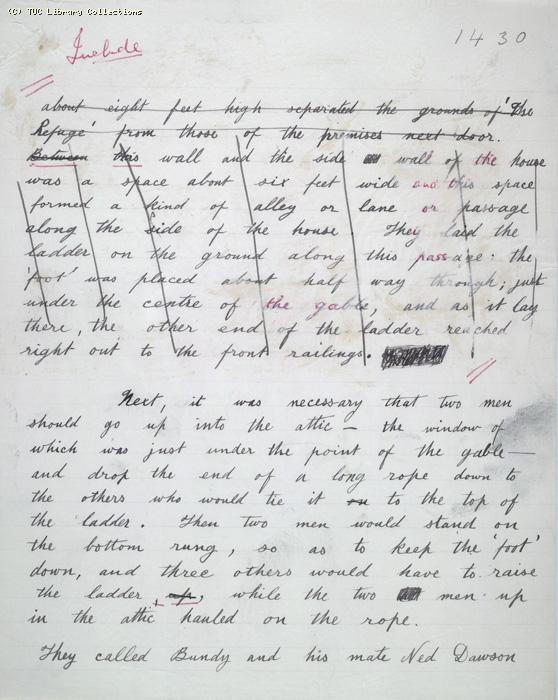 (C) TUC Library Collections
Include
1430
about eight feet high separated the grounds of 'The
Refuge' from those of the premises next door.
Between this wall and the side wall of the house
was a space about six feet wide and this space
formed a kind of alley or lane or passage
along the side of the house. They laid the
ladder on the ground along this passage: the
'foot' was placed about half way through; just
under the centre of the gable, and as it lay
there, the other end of the ladder reached
right out to the front railings.
Next, it was necessary that two men
should go up into the attic — the window of
which was just under the point of the gable —
and drop the end of a long rope down to
the others who would tie it on to the top of
the ladder. Then two men would stand on
the bottom rung, so as to keep the 'foot'
down, and three others would have to raise
the ladder up, while the two men up
in the attic hauled on the rope.
They called Bundy and his mate Ned Dawson